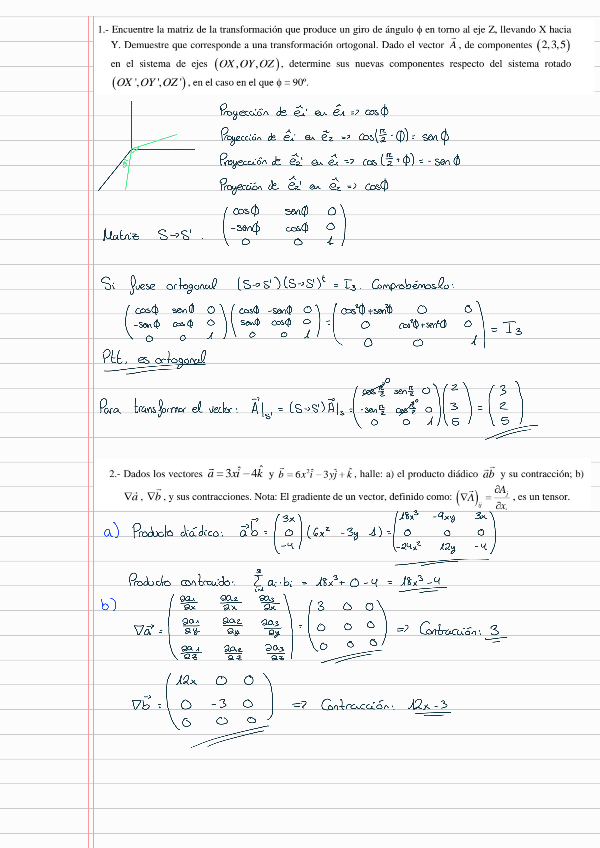 1.- Encuentre la matriz de la transformación que produce un giro de ángulo ϕ en torno al eje Z, llevando X hacia
Y. Demuestre que corresponde a una transformación ortogonal. Dado el vector $\vec{A}$, de componentes (2,3,5)
en el sistema de ejes (OX,OY,OZ), determine sus nuevas componentes respecto del sistema rotado
(OX',OY',OZ'), en el caso en el que ϕ = 90º.
Proyección de ê₁' en ê₁ => cosϕ
Proyección de ê₁' en ê₂ => cos(π/2 - ϕ) = senϕ
Proyección de ê₂' en ê₁ => cos(π/2 + ϕ) = -senϕ
Proyección de ê₂' en ê₂ => cosϕ
Matriz S→S'. $\begin{pmatrix} cosϕ & senϕ & 0 \\ -senϕ & cosϕ & 0 \\ 0 & 0 & 1 \end{pmatrix}$
Si fuese ortogonal (S→S')(S→S')ᵗ = I₃. Comprobémoslo:
$\begin{pmatrix} cosϕ & senϕ & 0 \\ -senϕ & cosϕ & 0 \\ 0 & 0 & 1 \end{pmatrix} \begin{pmatrix} cosϕ & -senϕ & 0 \\ senϕ & cosϕ & 0 \\ 0 & 0 & 1 \end{pmatrix} = \begin{pmatrix} cos²ϕ+sen²ϕ & 0 & 0 \\ 0 & cos²ϕ+sen²ϕ & 0 \\ 0 & 0 & 1 \end{pmatrix} = I₃$
Ptt, es ortogonal
Para transformar el vector: $\vec{A}|_{S'} = (S→S')\vec{A}|_S = \begin{pmatrix} cos\frac{π}{2}^0 & sen\frac{π}{2} & 0 \\ -sen\frac{π}{2} & cos\frac{π}{2}^0 & 0 \\ 0 & 0 & 1 \end{pmatrix} \begin{pmatrix} 2 \\ 3 \\ 5 \end{pmatrix} = \begin{pmatrix} 3 \\ 2 \\ 5 \end{pmatrix}$
2.- Dados los vectores $\vec{a} = 3x\hat{i} - 4\hat{k}$ y $\vec{b} = 6x²\hat{i} - 3y\hat{j} + \hat{k}$, halle: a) el producto diádico $\vec{a}\vec{b}$ y su contracción; b)
$∇\vec{a}$, $∇\vec{b}$, y sus contracciones. Nota: El gradiente de un vector, definido como: $(∇\vec{A})_{ij} = \frac{∂A_j}{∂x_i}$, es un tensor.
a) Producto diádico: $\vec{a}\vec{b} = \begin{pmatrix} 3x \\ 0 \\ -4 \end{pmatrix} (6x² \; -3y \; 1) = \begin{pmatrix} 18x³ & -9xy & 3x \\ 0 & 0 & 0 \\ -24x² & 12y & -4 \end{pmatrix}$
Producto contraido: $\sum_{i=1}^{3} a_i · b_i$ = 18x³ + 0 - 4 = 18x³ - 4
b)
$∇\vec{a} = \begin{pmatrix} \frac{∂a_1}{∂x} & \frac{∂a_2}{∂x} & \frac{∂a_3}{∂x} \\ \frac{∂a_1}{∂y} & \frac{∂a_2}{∂y} & \frac{∂a_3}{∂y} \\ \frac{∂a_1}{∂z} & \frac{∂a_2}{∂z} & \frac{∂a_3}{∂z} \end{pmatrix} = \begin{pmatrix} 3 & 0 & 0 \\ 0 & 0 & 0 \\ 0 & 0 & 0 \end{pmatrix}$ => Contracción: 3
$∇\vec{b} = \begin{pmatrix} 12x & 0 & 0 \\ 0 & -3 & 0 \\ 0 & 0 & 0 \end{pmatrix}$ => Contracción: 12x - 3